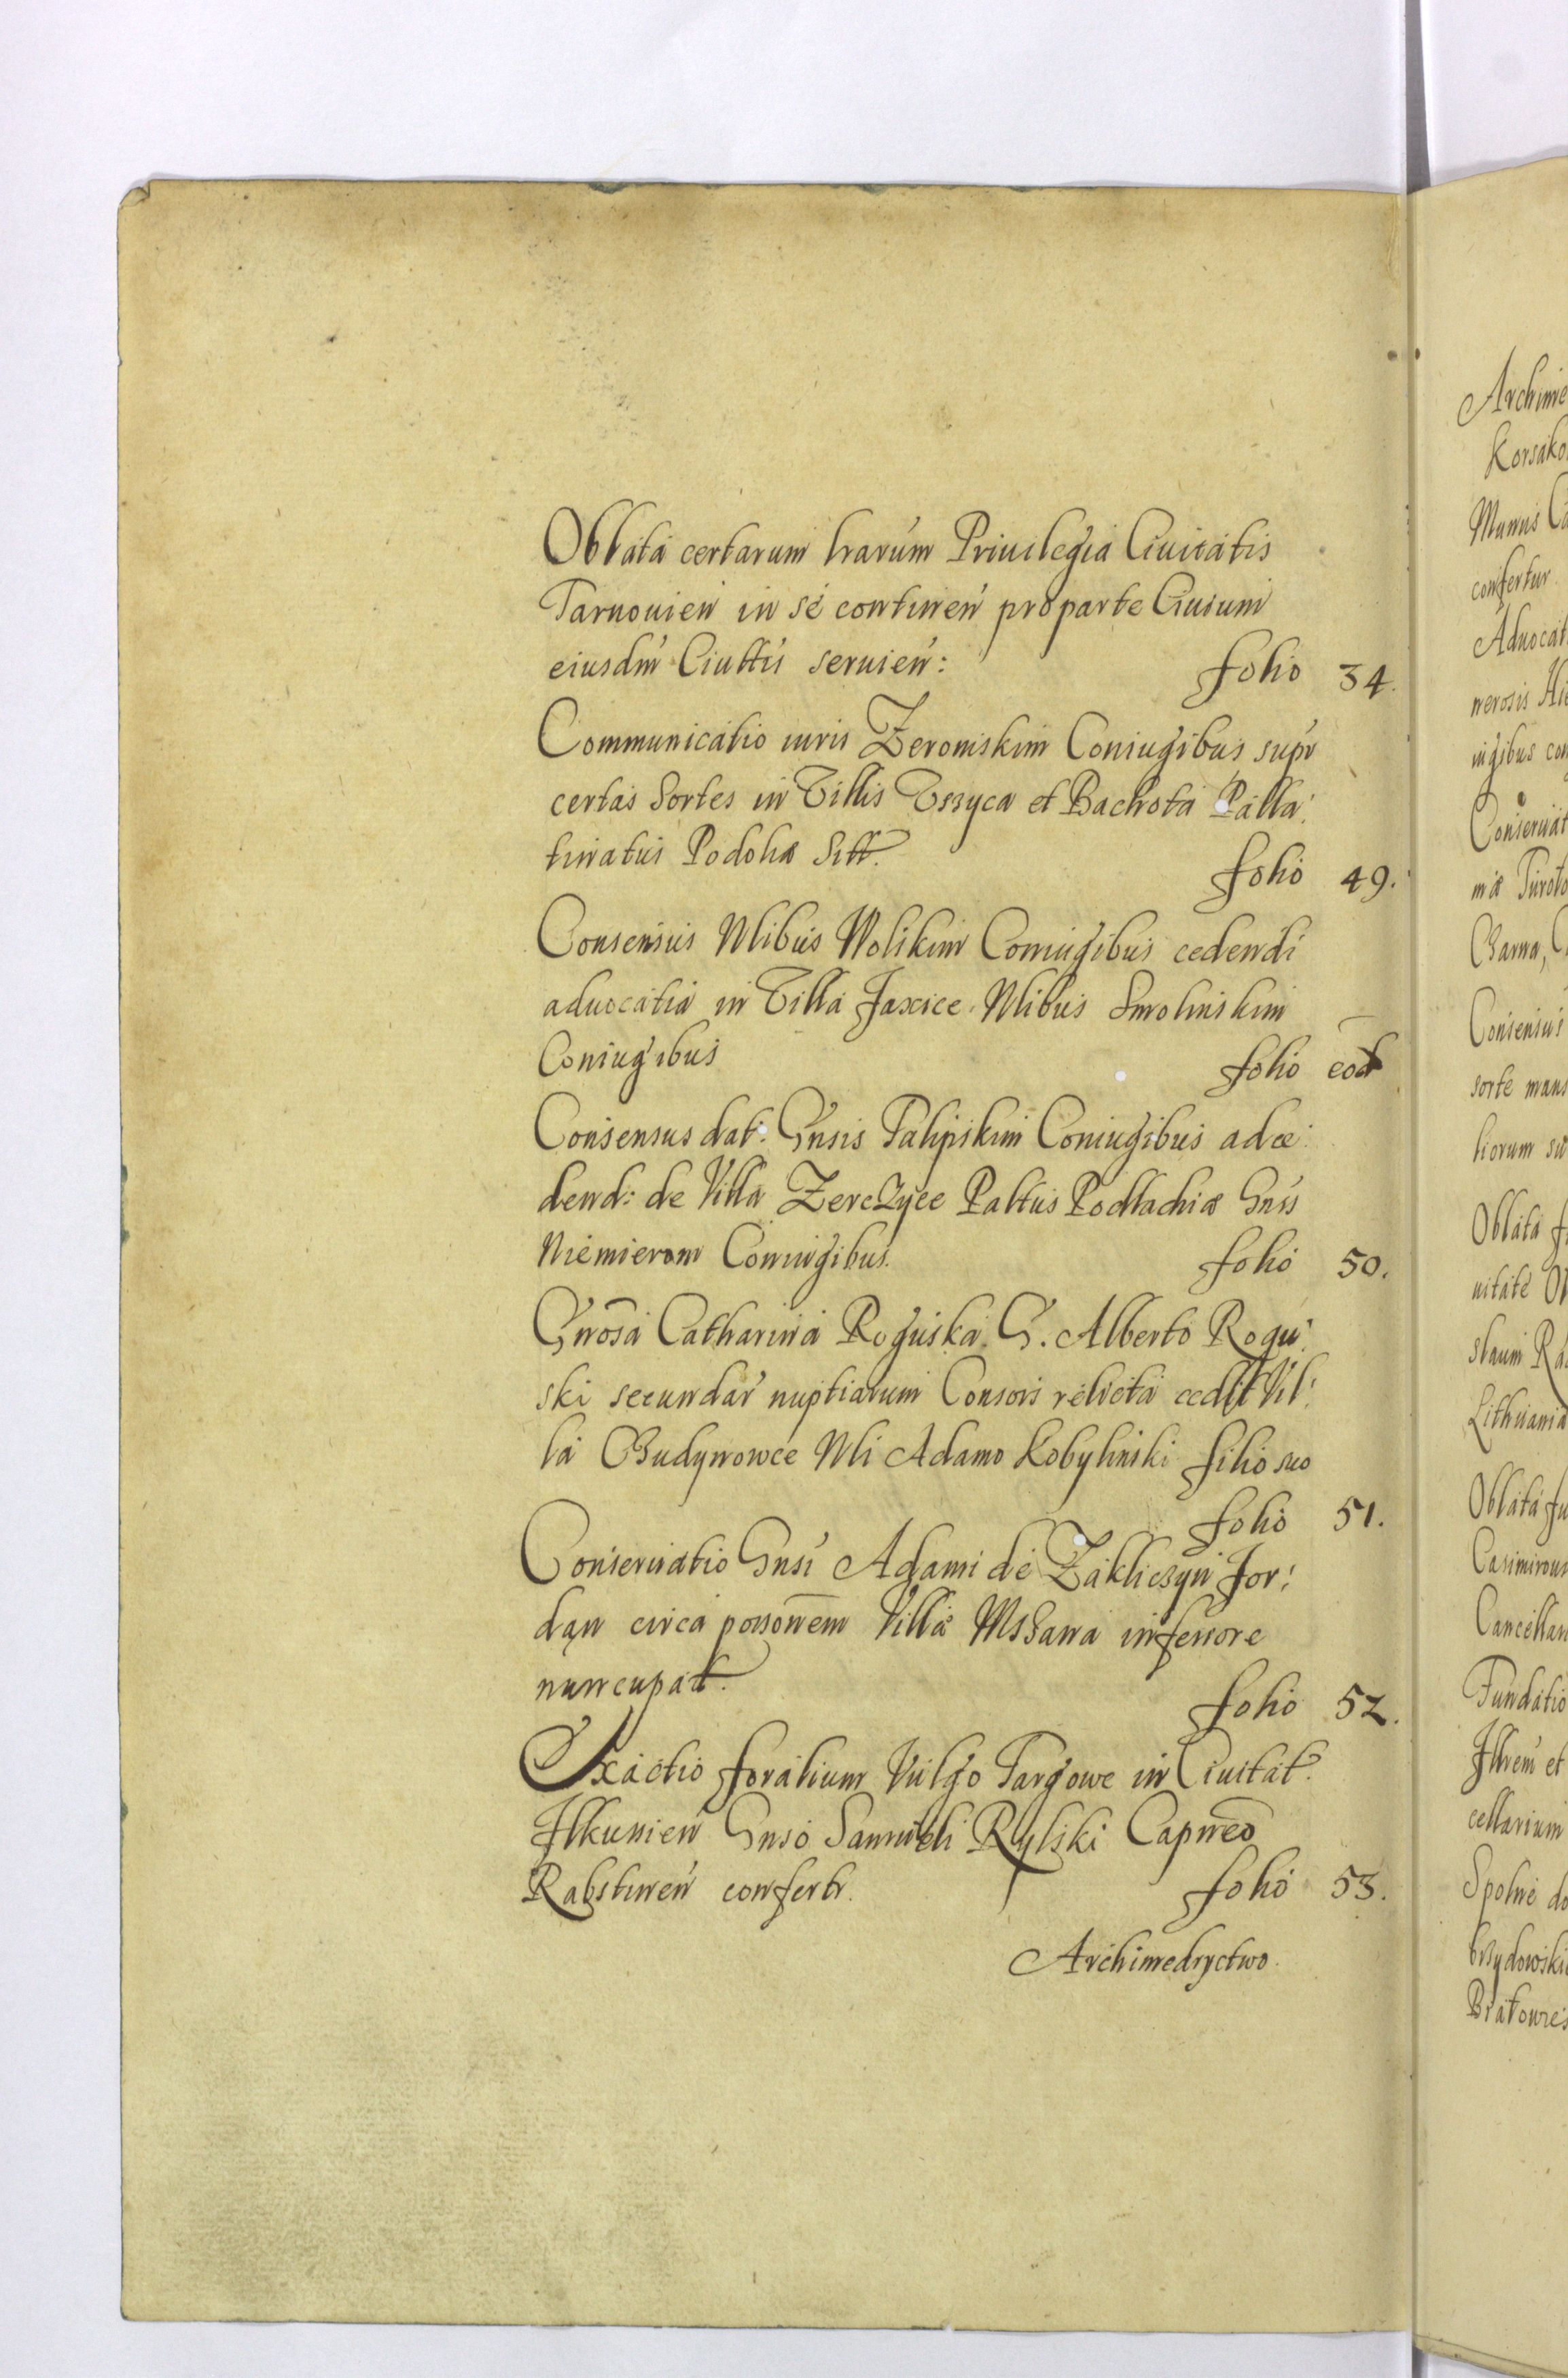 Oblata certarum lrarum Priuilegia Ciuitatis
Tarnouien in se continen pro parte Ciuium
eiusdm Ciuttis seruien: folio 34.
Communicatio iuris Zeromskim Coniugibus supr
certas Sortes in Villis et Bachota Palla:
tinatus Podoliæ Sitt. folio 49.
Consensus Nlibus Wolskim Coniugibus cedendi
aduocatia in Villa Jaxice Nlibus Smolinskim
Coniugibus folio eod
Consensus dat: Gnsis Talipskim Coniugibus ad ce:
dend: de Villa Zerczyce Paltus Podlachiæ Gnss
Niemierom Coniugibus. folio 50.
Gnosa Catharina Roguska G. Alberto Rogu:
ski secundar nuptiarum Consors relicta cedit Vil:
la Budynowce Nli Adamo Kobylinski filio suo
folio 51.
Conseruatio Gnsi Adami de Zakliczyn Jor:
dan circa possonem Villæ Mszana inferiore
nuncupat. folio 52.
Exactio foralium Vulgo Targowe in Ciuitat.
Ilkusien Gnso Samueli Rylski Capneo
Rabstinen confertr. folio 53.
Archimedryctwo.
Archime
Korsako
Munus Ca
confertur
Aduocat
nerosis Hie
iugibus con
Conseruat
Consensus
sorte mans
liorum su
Oblata f
uitate Ol
slaum Ra
Lithuania
Oblata fu
Casimirou
Cancellar
Fundatio
Illrem et
cellarium
Spolne do